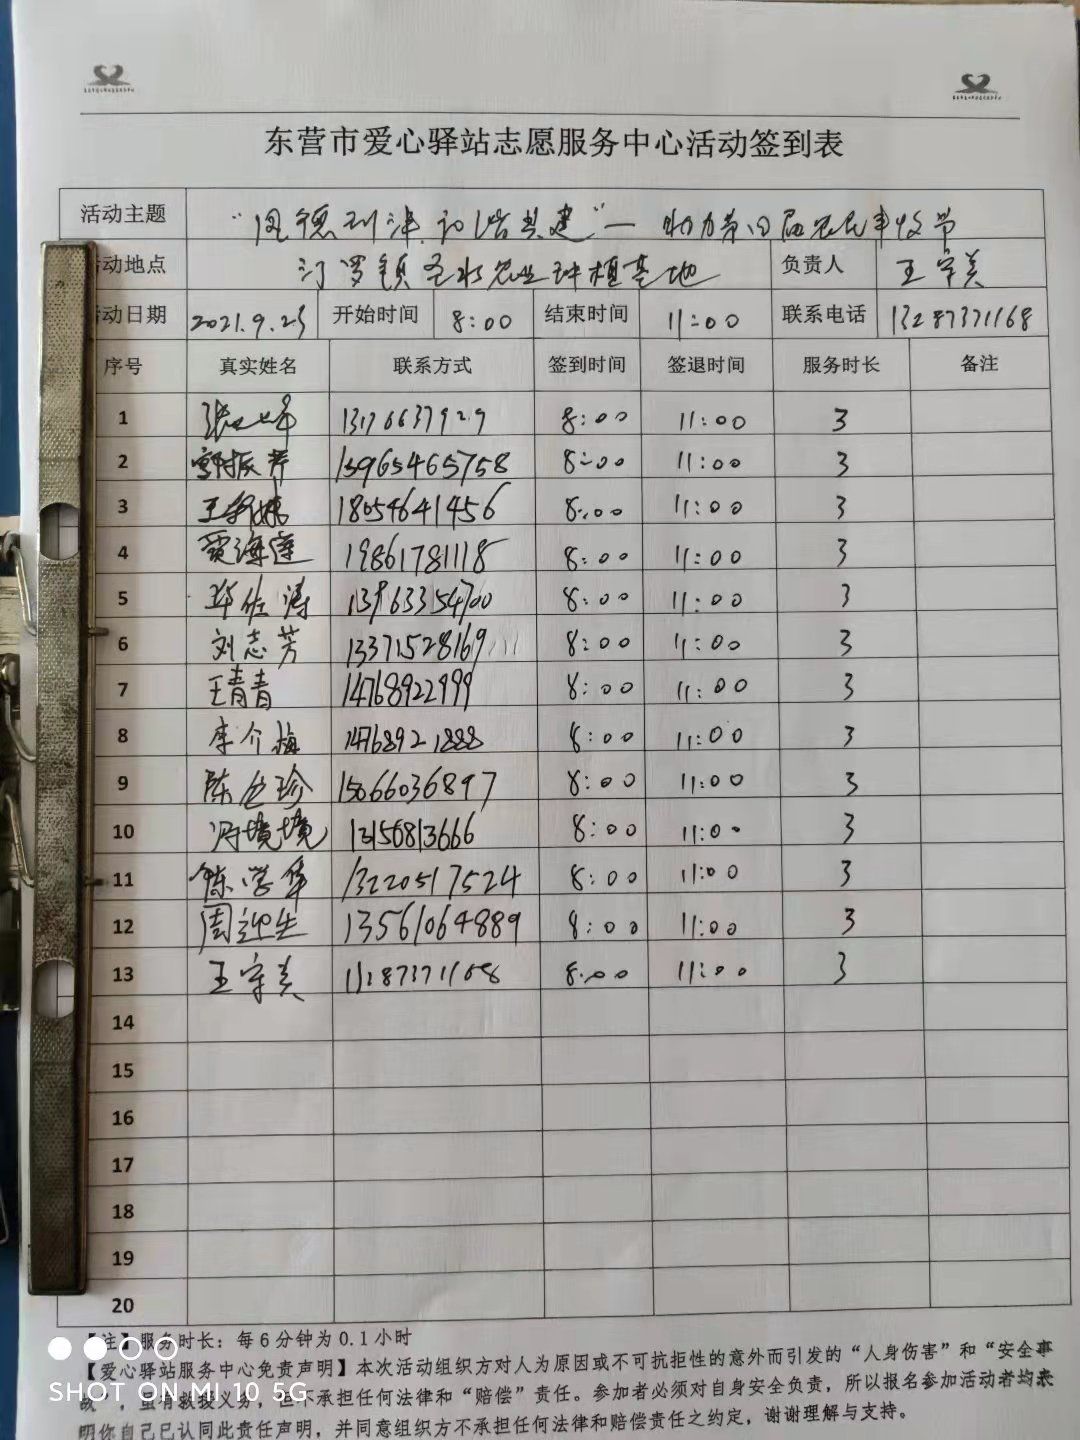 东营市爱心驿站志愿服务中心活动签到表
活动主题 “同德利津、和谐共建”— 助力第四届农民丰收节
活动地点 汀罗镇圣水农业种植基地 负责人 王守美
活动日期 2021.9.23 开始时间 8:00 结束时间 11:00 联系电话 13287371168
序号 真实姓名 联系方式 签到时间 签退时间 服务时长 备注
1 13176637929 8:00 11:00 3
2 郭振芹 13965465758 8:00 11:00 3
3 18054641456 8:00 11:00 3
4 贾海莲 19861781118 8:00 11:00 3
5 华佐涛 13963354700 8:00 11:00 3
6 刘志芳 13371528169 8:00 11:00 3
7 王青青 14768922999 8:00 11:00 3
8 李介梅 14768921888 8:00 11:00 3
9 陈 珍 15066036897 8:00 11:00 3
10 冯境境 13156813666 8:00 11:00 3
11 陈学华 13220517524 8:00 11:00 3
12 周迎生 13561064889 8:00 11:00 3
13 王守美 8:00 11:00 3
14
15
16
17
18
19
20
【注】服务时长：每6分钟为0.1小时
【爱心驿站服务中心免责声明】本次活动组织方对人为原因或不可抗拒性的意外而引发的“人身伤害”和“安全事
故”，虽有救援义务，但不承担任何法律和“赔偿”责任。参加者必须对自身安全负责，所以报名参加活动者均表
明你自己已认同此责任声明，并同意组织方不承担任何法律和赔偿责任之约定，谢谢理解与支持。
SHOT ON MI 10 5G